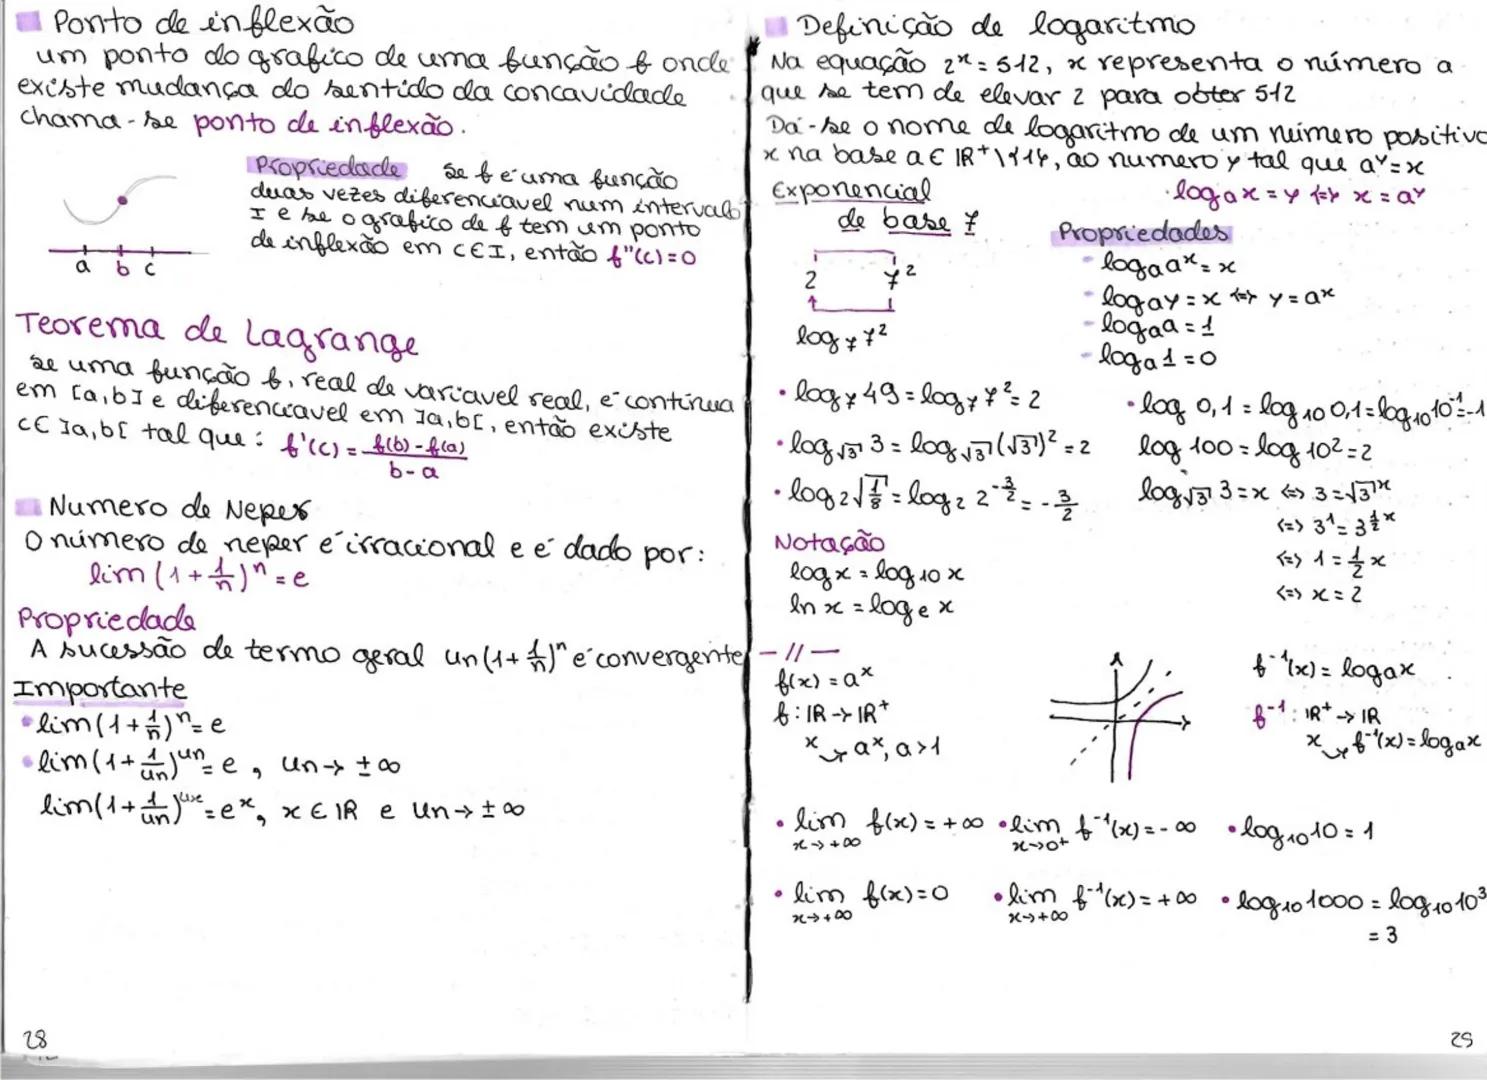 Ponto de inflexão
um ponto do grafico de uma função f onde
existe mudança do sentido da concavidade
chama-se ponto de inflexão.
Propriedade se f é uma função
duas vezes diferenciavel num intervalo
I e se o grafico de f tem um ponto
de inflexão em c∈I, então f"(c)=0
a b c
Teorema de Lagrange
se uma função f, real de variavel real, é continua
em [a,b] e diferenciavel em ]a,b[, então existe
c∈]a,b[ tal que: f'(c) = f(b)-f(a) / b-a
Numero de Neper
O número de neper é irracional e é dado por:
lim (1+1/n)^n = e
Propriedade
A sucessão de termo geral un(1+1/n)^n é convergente
Importante
lim(1+1/n)^n = e
lim(1+1/un)^un = e, un→ ±∞
lim(1+1/un)^ux = e^x, x∈IR e un→±∞
28
Definição de logaritmo
Na equação 2^x = 512, x representa o número a
que se tem de elevar 2 para obter 512
Dá-se o nome de logaritmo de um número positivo
x na base a∈IR+\{1}, ao numero y tal que a^y=x
log_a x = y <=> x = a^y
Exponencial
de base 7
2 7^2
log_7 7^2
Propriedades
log_a a^x = x
log_a y = x <=> y = a^x
log_a a = 1
log_a 1 = 0
log_7 49 = log_7 7^2 = 2
log_√3 3 = log_√3 (√3)^2 = 2
log_2 √1/8 = log_2 2^-3/2 = -3/2
log 0,1 = log_10 0,1 = log_10 10^-1 = -1
log 100 = log 10^2 = 2
log_√3 3 = x <=> 3 = √3^x
<=> 3^1 = 3^1/2 x
<=> 1 = 1/2 x
<=> x = 2
Notação
log x = log_10 x
ln x = log_e x
-//-
f(x) = a^x
f: IR → IR+
x → a^x, a>1
f^-1(x) = log_a x
f^-1: IR+ → IR
x → f^-1(x) = log_a x
lim f(x) = +∞ lim f^-1(x) = -∞ log_10 10 = 1
x→+∞ x→0+
lim f(x) = 0 lim f^-1(x) = +∞ log_10 1000 = log_10 10^3
x→+∞ x→+∞ = 3
29